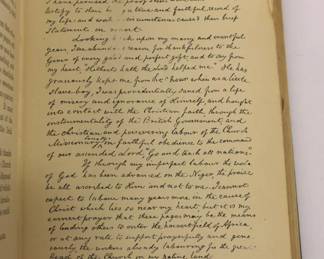 I have perused the proof sheets
testify to there is a true and faithful record of
my life and work circumstances causes their brief
Statements in court.
Looking back upon my many and eventful
years I see abundant reason for thankfulness to the
Giver of every good and perfect gift and to say from
my heart, Hitherto hath the Lord helped me. He has
graciously kept me from the hour when as a little
slave-boy, I was providentially saved from a life
of misery and ignorance of Himself, and brought
into contact with the Christian faith, through the
instrumentality of the British Government, and
the Christian, and persevering labour of the Church
Missionary Society in faithful obedience to the command
of our ascended Lord, "Go and teach all nations."
If through my imperfect labours the work
of God has been advanced on the Niger, the praise
be all ascribed to Him and not to me. I cannot
expect to labour many years more, in the cause of
Christ which lies so near my heart, but it is my
earnest prayer that these pages may be the means
of leading others to enter the harvest field of Africa
or at any rate to support prayerfully and generously
the workers already labouring for the great
head of the Church in my native land.